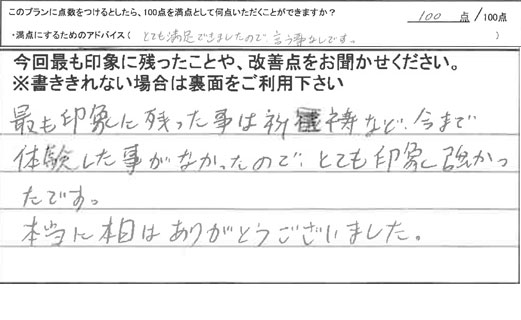 このプランに点数をつけるとしたら、100点を満点として何点いただくことができますか？ 100 点/100点
・満点にするためのアドバイス（ とても満足できましたので、言う事なしです。 ）
今回最も印象に残ったことや、改善点をお聞かせください。
※書ききれない場合は裏面をご利用下さい
最も印象に残った事は祈祷など、今まで
体験した事がなかったので、とても印象強かっ
たです。
本当に本日はありがとうございました。